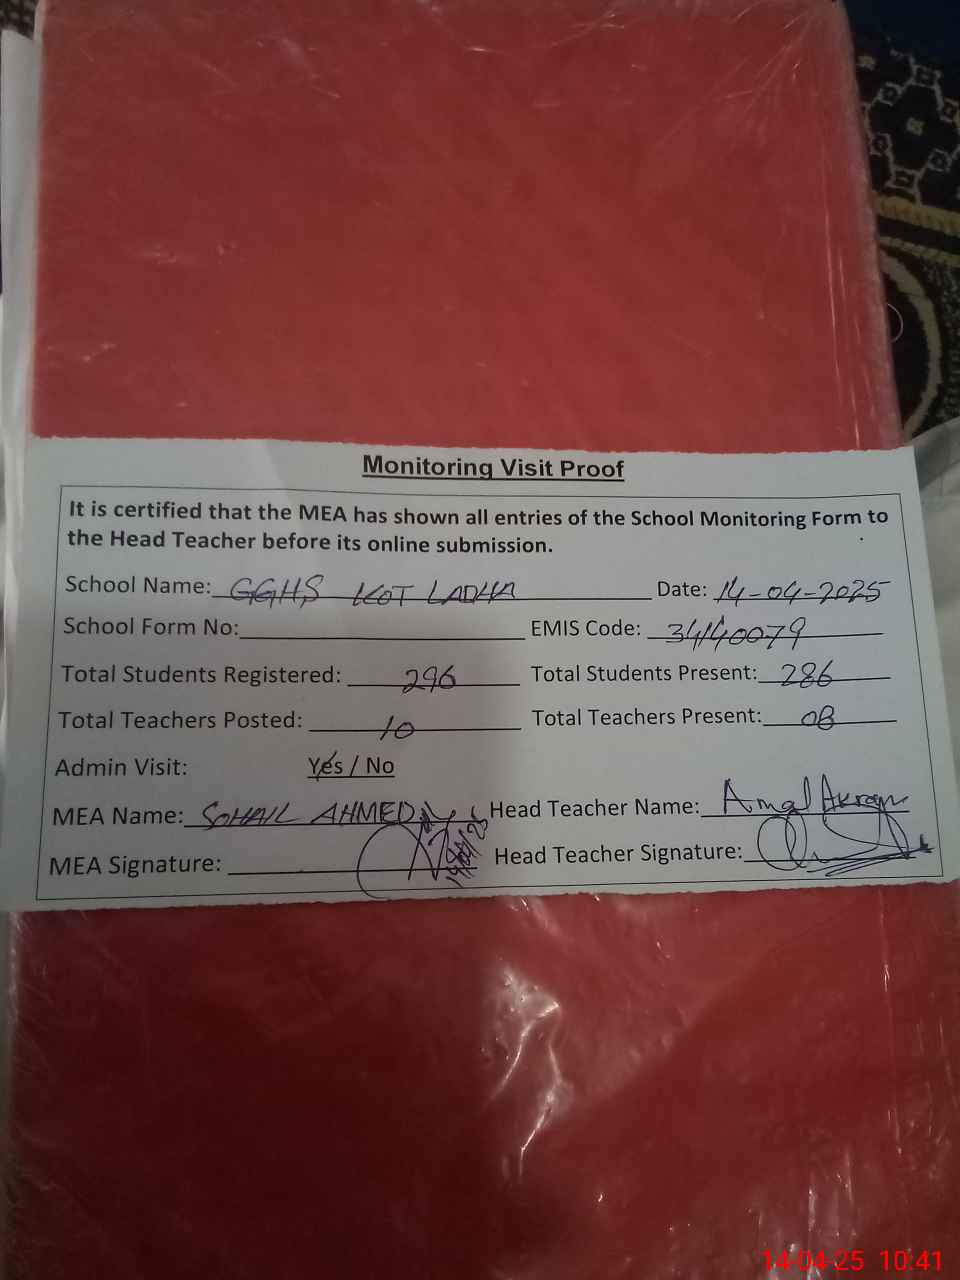 Monitoring Visit Proof
It is certified that the MEA has shown all entries of the School Monitoring Form to
the Head Teacher before its online submission.
School Name: GGHS KOT LADHA Date: 14-04-2025
School Form No: EMIS Code: 34140079
Total Students Registered: 296 Total Students Present: 286
Total Teachers Posted: 10 Total Teachers Present: 08
Admin Visit: Yes / No
MEA Name: SOHAIL AHMED Head Teacher Name: Amal Akram
MEA Signature: 14/04/25 Head Teacher Signature:
14-04-25 10:41